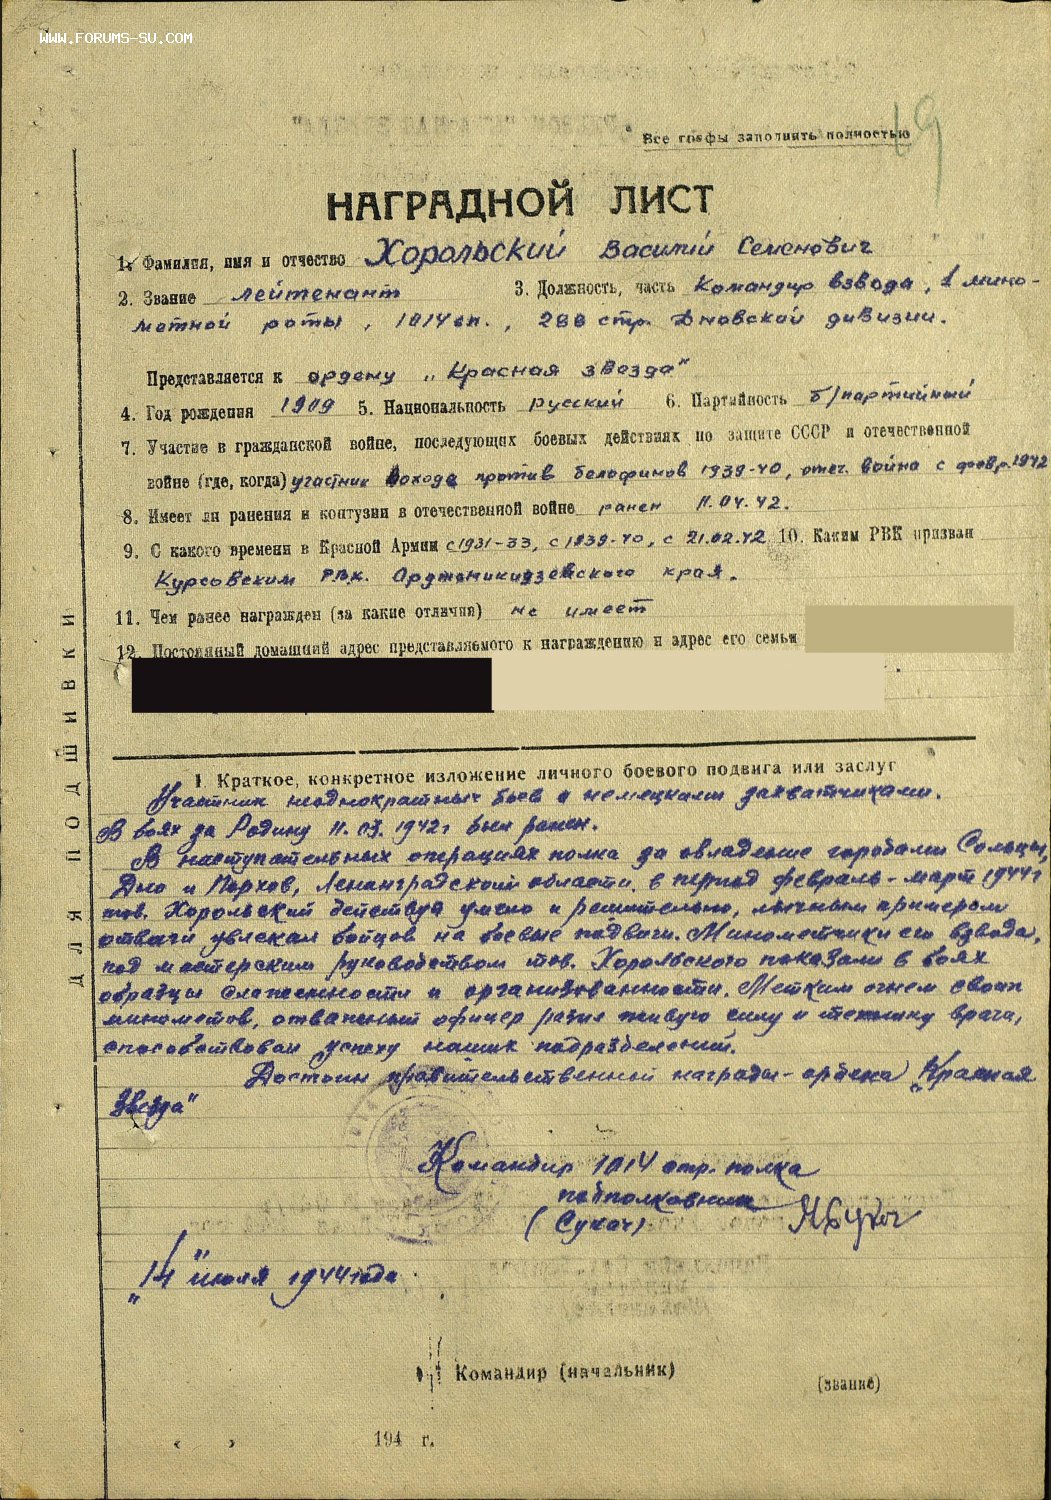 WWW.FORUMS-SU.COM
19
Все графы заполнить полностью
НАГРАДНОЙ ЛИСТ
1. Фамилия, имя и отчество Хорольский Василий Семенович
2. Звание лейтенант 3. Должность, часть Командир взвода, 1 мино-
метной роты, 1014 сп., 288 стр. Дновской дивизии.
Представляется к ордену „Красная звезда"
4. Год рождения 1909 5. Национальность русский 6. Партийность б/партийный
7. Участие в гражданской войне, последующих боевых действиях по защите СССР и отечественной
войне (где, когда) участник похода против белофинов 1939-40, отеч. война с февр. 1942
8. Имеет ли ранения и контузии в отечественной войне ранен 11.04.42.
9. С какого времени в Красной Армии с 1931-33, с 1939-40, с 21.02.42 10. Каким РВК призван
Курсовским РВК. Орджоникидзевского края.
11. Чем ранее награжден (за какие отличия) не имеет
12. Постоянный домашний адрес представляемого к награждению и адрес его семьи
ДЛЯ ПОДШИВКИ
1. Краткое, конкретное изложение личного боевого подвига или заслуг
Участник неоднократных боев с немецкими захватчиками.
В боях за Родину 11.03.1942 г был ранен.
В наступательных операциях полка за овладение городами Сольцы,
Дно и Порхов, Ленинградской области, в период февраль-март 1944 г
тов. Хорольский действуя умело и решительно, личным примером
отваги увлекал бойцов на боевые подвиги. Минометчики его взвода,
под мастерским руководством тов. Хорольского показали в боях
образцы слаженности и организованности. Метким огнем своих
минометов, отважный офицер разил живую силу и технику врага,
способствовал успеху наших подразделений.
Достоин правительственной награды - ордена „Красная
Звезда"
Командир 1014 стр. полка
подполковник
(Сукач)
„14" июля 1944 года
Командир (начальник)
(звание)
« » 194 г.